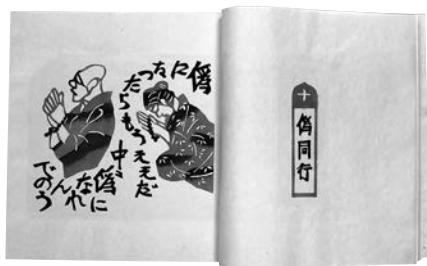 十
僞同行
僞になつ
たらもうええだ
中々僞に
なれん
でのう